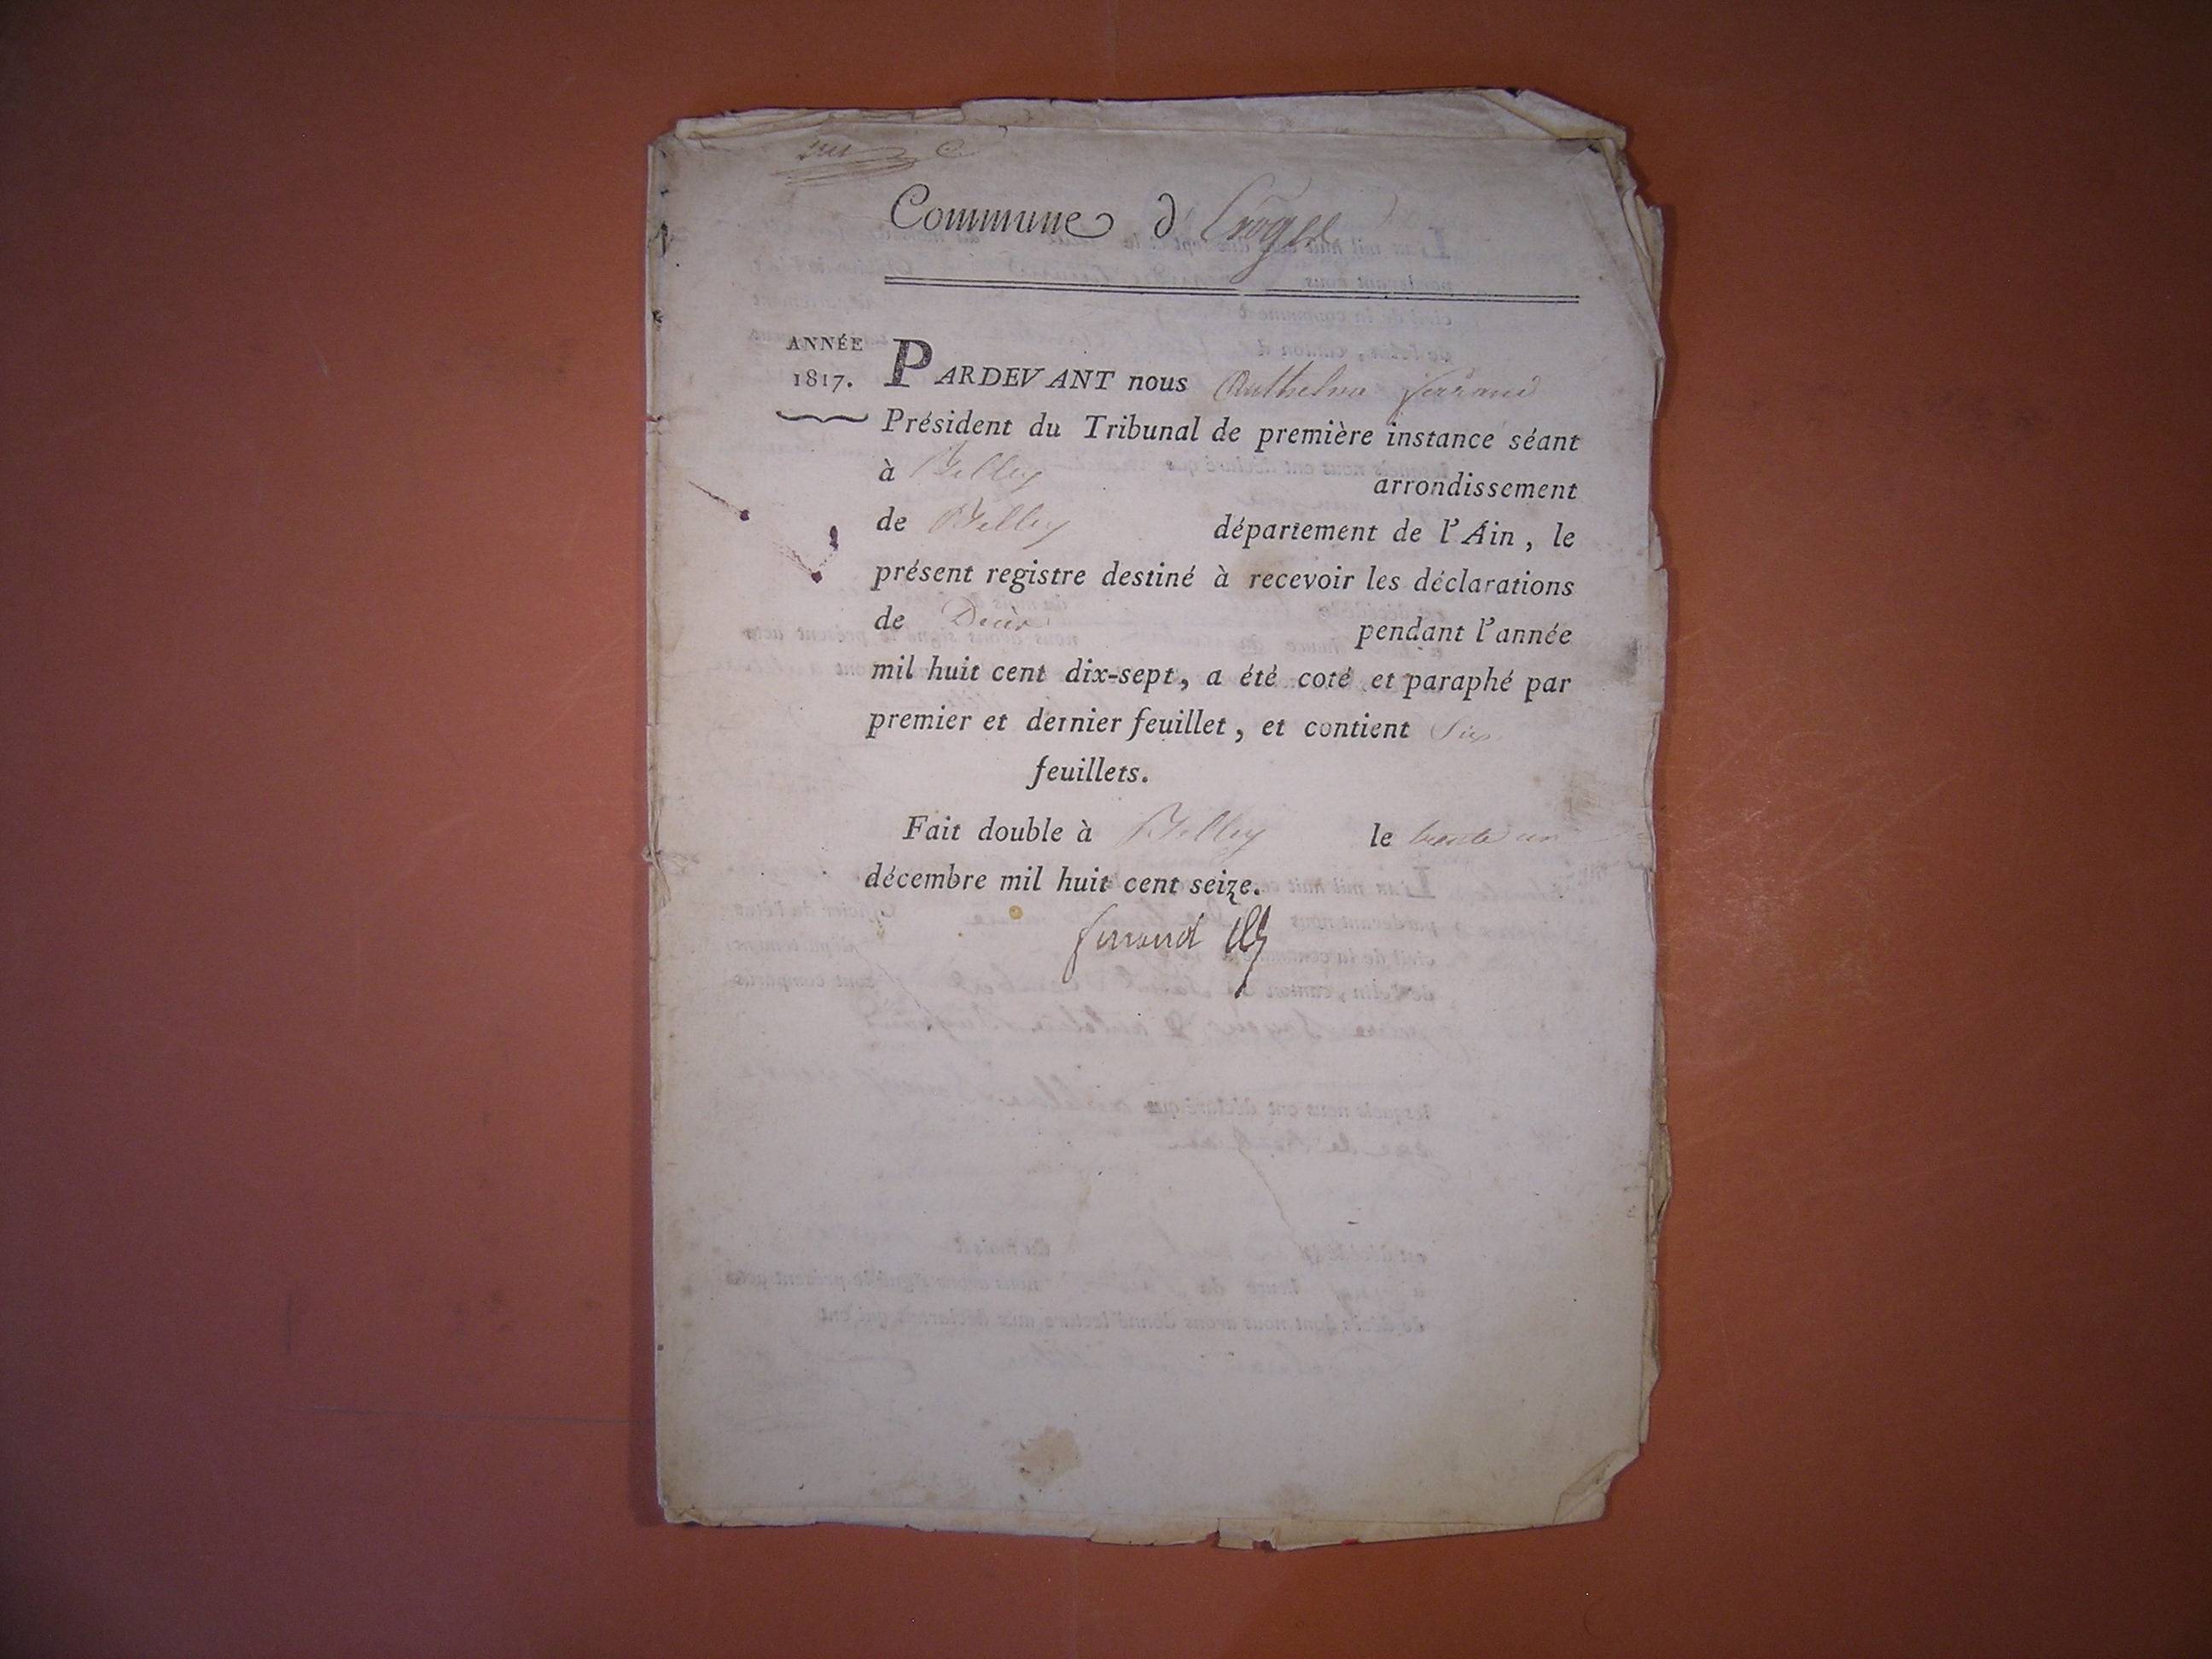 Commune d'
ANNÉE
1817.
PARDEVANT nous Anthelme ferrand
Président du Tribunal de première instance séant
à Belley arrondissement
de Belley département de l'Ain, le
présent registre destiné à recevoir les déclarations
de Décès pendant l'année
mil huit cent dix-sept, a été coté et paraphé par
premier et dernier feuillet, et contient six
feuillets.
Fait double à Belley le trente un
décembre mil huit cent seize.
ferrand